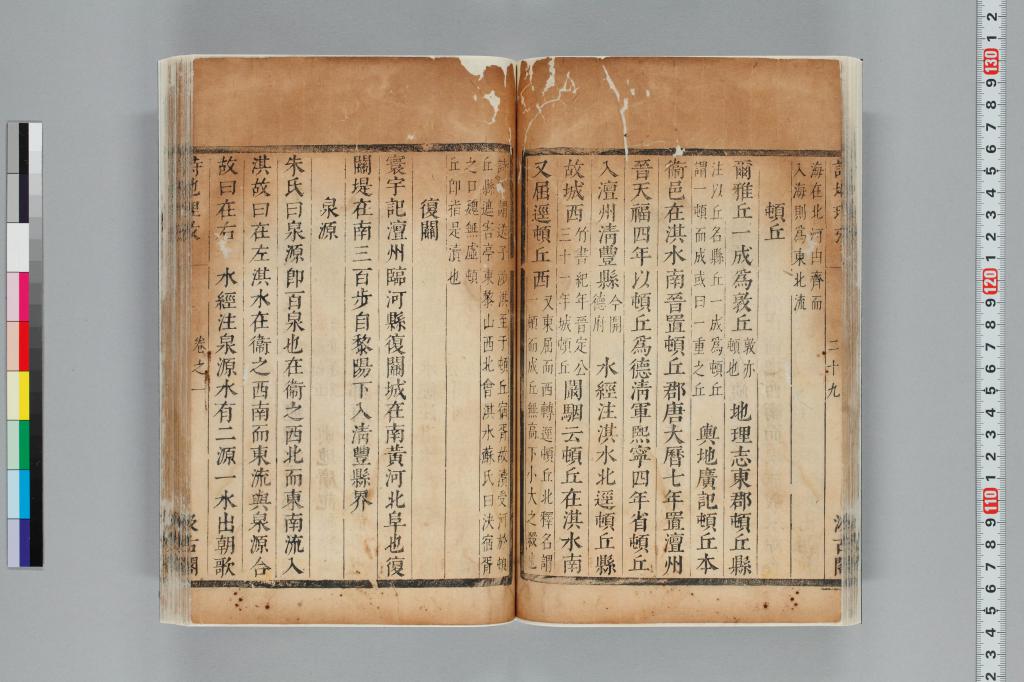 二十九
海在北河由齊而
入海則爲東北流
頓丘
爾雅丘一成爲敦丘敦亦頓也 地理志東郡頓丘縣
注以丘名縣丘一成爲頓丘謂一頓而成或曰一重之丘 輿地廣記頓丘本
衞邑在淇水南晉置頓丘郡唐大曆七年置澶州
晉天福四年以頓丘爲德淸軍熙寧四年省頓丘
入澶州淸豐縣今開德府 水經注淇水北逕頓丘縣
故城西竹書紀年晉定公三十一年城頓丘 闞駰云頓丘在淇水南
又屈逕頓丘西又東屈而西轉逕頓丘北釋名謂一頓而成丘無高下小大之殺也
詩所謂送子涉淇至于頓丘宿胥故瀆受河於頓
丘縣遮害亭東黎山西北會淇水蘇氏曰決宿胥
之口魏無虛頓
丘卽指是瀆也
復關
寰宇記澶州臨河縣復關城在南黃河北阜也復
關堤在南三百步自黎陽下入淸豐縣界
泉源
朱氏曰泉源卽百泉也在衞之西北而東南流入
淇故曰在左淇水在衞之西南而東流與泉源合
故曰在右 水經注泉源水有二源一水出朝歌
卷之一